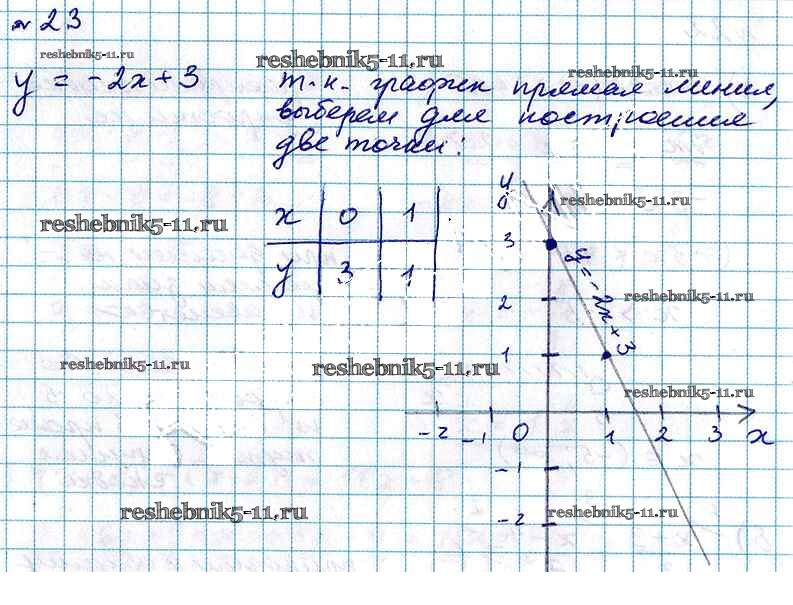 № 23
reshebnik5-11.ru
reshebnik5-11.ru
reshebnik5-11.ru
y = -2x+3
т.к. график прямая линия,
выберем для построения
две точки:
reshebnik5-11.ru
reshebnik5-11.ru
x 0 1
y 3 1
y
3
2
1
y=-2x+3
reshebnik5-11.ru
reshebnik5-11.ru
reshebnik5-11.ru
reshebnik5-11.ru
-2 -1 0 1 2 3 x
-1
-2
reshebnik5-11.ru
reshebnik5-11.ru